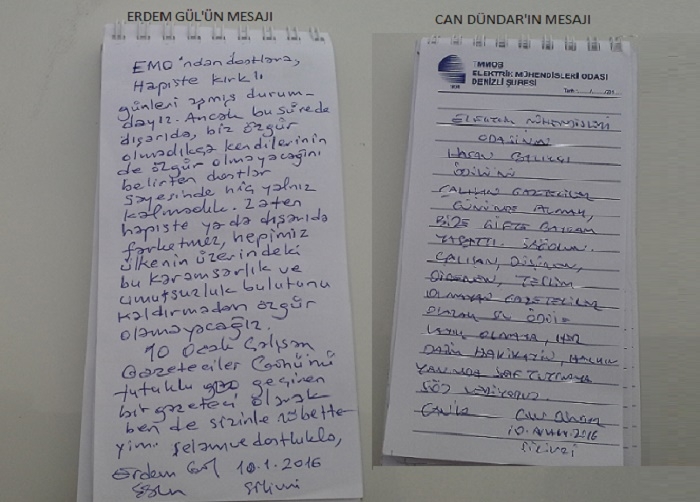 ERDEM GÜL'ÜN MESAJI
EMO'ndan dostlara,
Hapiste kırklı
günleri aşmış durum-
dayız. Ancak bu sürede
dışarıda, biz özgür
olmadıkça kendilerinin
de özgür olmayacağını
belirten dostlar
sayesinde hiç yalnız
kalmadık. Zaten
hapiste ya da dışarıda
farketmez, hepimiz
ülkenin üzerindeki
bu karamsarlık ve
umutsuzluk bulutunu
kaldırmadan özgür
olamayacağız.
10 Ocak Çalışan
Gazeteciler Gününü
tutuklu geçiren
bir gazeteci olarak
ben de sizinle nöbette-
yim. Selam ve dostlukla,
Erdem Gül 10.1.2016
Silivri
CAN DÜNDAR'IN MESAJI
TMMOB
ELEKTRİK MÜHENDİSLERİ ODASI
DENİZLİ ŞUBESİ
ELEKTRİK MÜHENDİSLERİ
ODASI'NIN
HASAN BALIKÇI
ÖDÜLÜNÜ
ÇALIŞAN GAZETECİLER
GÜNÜNDE ALMAK,
BİZE ÇİFTE BAYRAM
YAŞATTI. SAĞOLUN.
ÇALIŞAN, DÜŞÜNEN,
DİRENEN, TESLİM
OLMAYAN GAZETECİLER
OLARAK BU ÖDÜLE
LAYIK OLMAYA, HER
DAİM HAKİKATİN, HALKIN
YANINDA SAF TUTMAYA
SÖZ VERİYORUZ.
Can Dündar
10 2016
SİLİVRİ